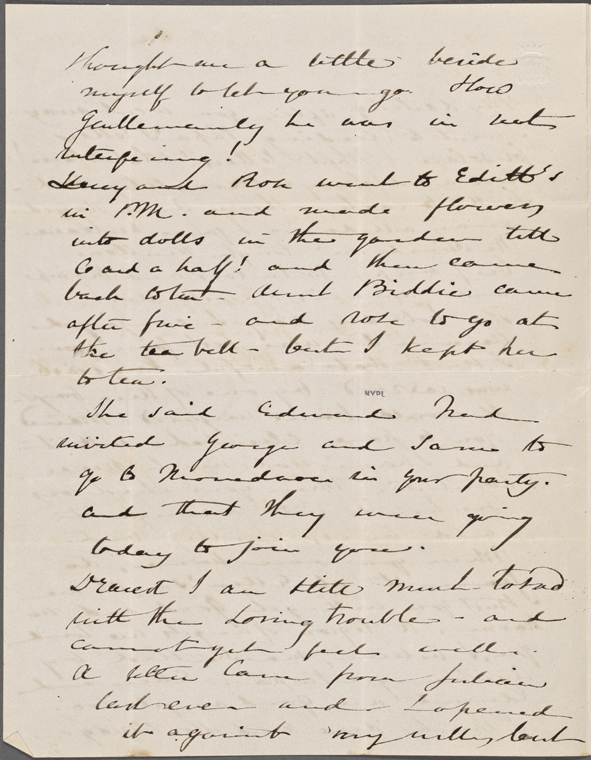 thought me a little beside
myself to let you go. How
Gentlemanly he was in not
interfering!
and Rose went to Edith's
in P.M. and made flowers
into dolls in the garden till
6 and a half! and then came
back to tea. Aunt Biddie came
after five - and rose to go at
the tea bell - but I kept her
to tea.
NYPL
She said Edward
invited George and to
go to in your party.
and that they were going
today to join you.
Dearest I am still much
with the trouble - and
cannot yet feel well.
A letter came from Julian
last even and I opened
it against my will, but